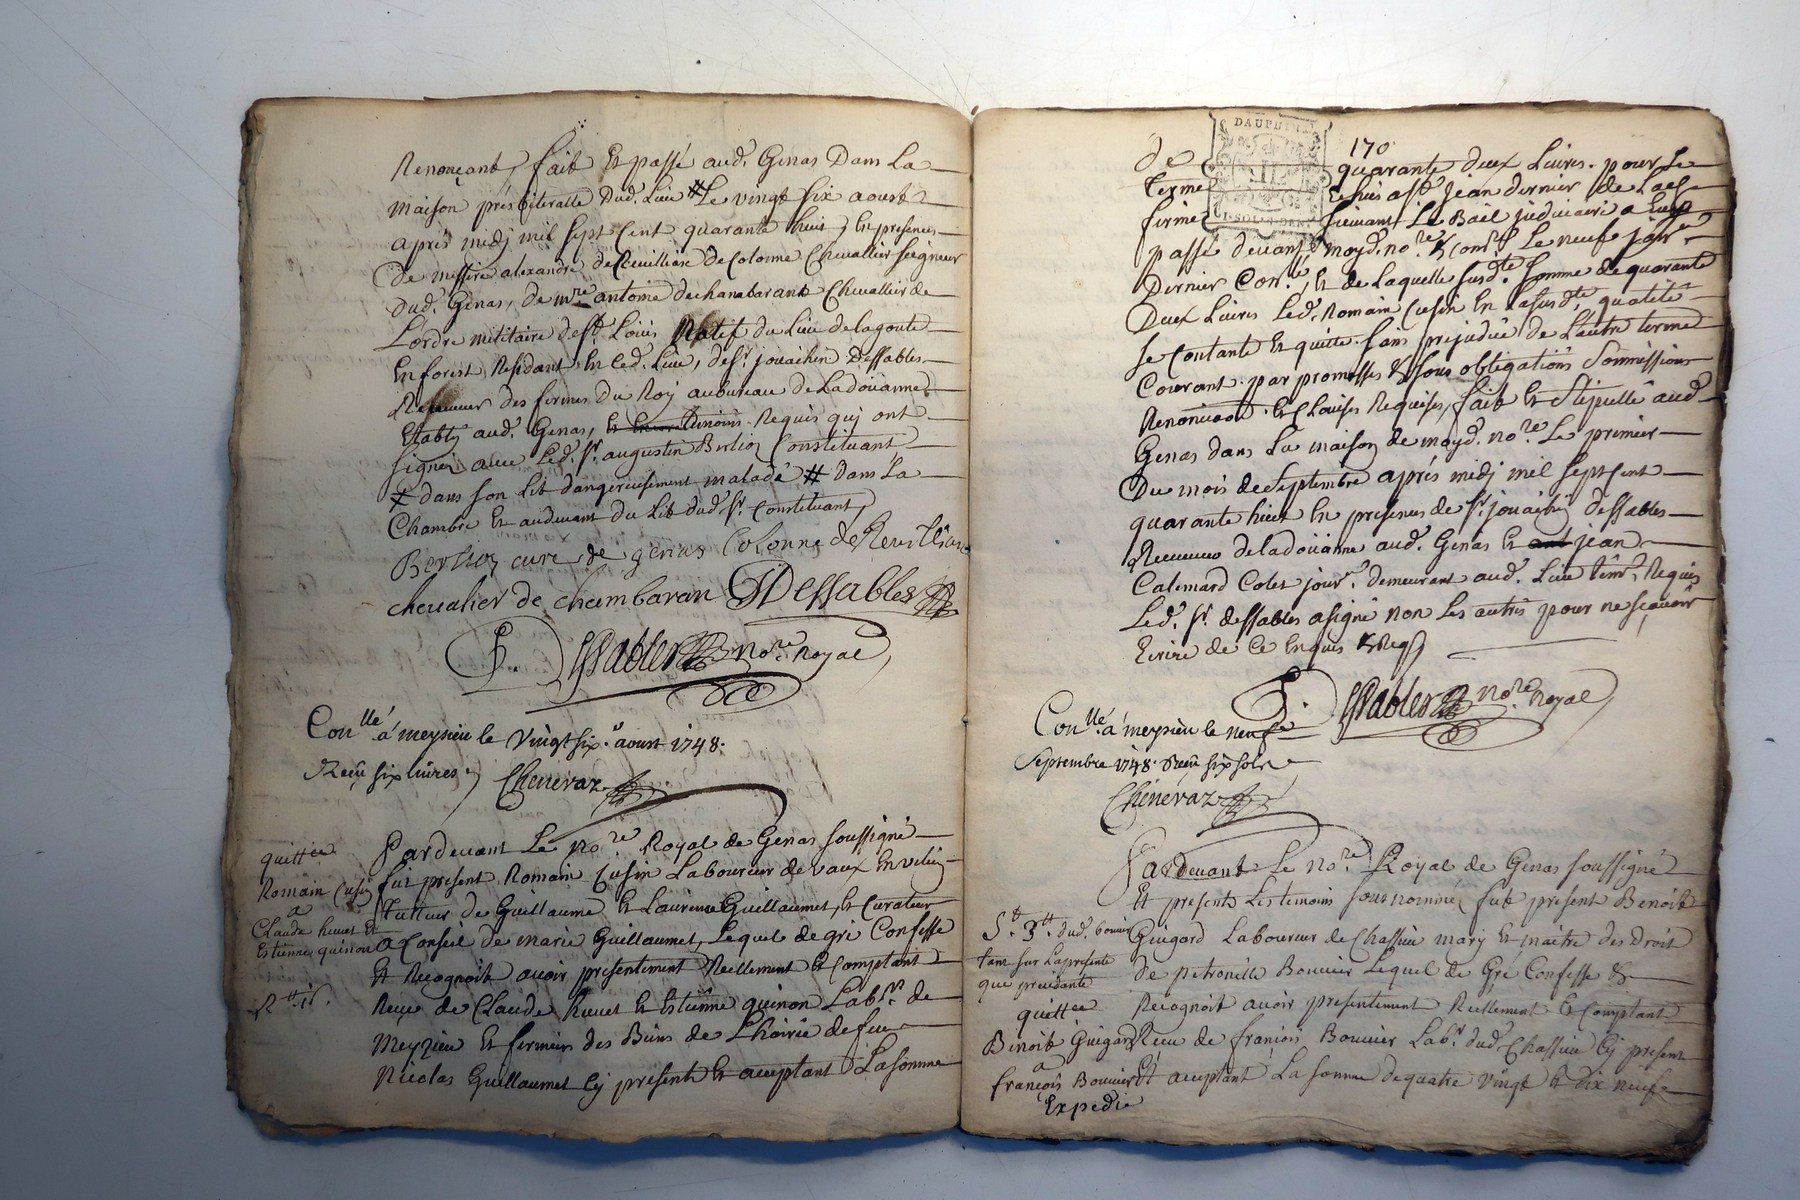 Renonçant, fait et passé aud. Genas Dans La
maison présbiteralle Dud. Lieu # Le vingt six aoust
après midj mil sept Cent quarante huit, En presences
De messire alexandre de Reuilliasc de Colonne Chevallier seigneur
Dud. Genas, de mre antoine dechanabarant Chevallier de
Lordre militaire de st. Loüis Natif du Lieu de lagoute
En forest Residant en Led. Lieu, de sr. joüachin Dessables
Receveur des fermes du Roj au bureau de La doüanne
Etablj aud. Genas, témoins Requis quj ont
signé avec Led. sr. augustin Berlioz Constituant
# dans son Lit dangereusement malade # dans La
Chambre et audevant du Lit dud. sr. Constituant,
Berlioz curé de genas Colonne de
chevalier de chambaran Dessables
Dessables nore. Royal
Conllé. á meysieu le Vingt six aoust 1748.
Reçu six livres, Chenevaz
quittce
Romain Cusin
a
Claude huvet Et
Estienne quinon
Pardevant Le nore Royal de Genas soussigné
fut present Romain Cusin Laboureur de vaux En velin
Tutteur de Guillaume Et Laurence Guillaumet, et Curateur
a Conseil de marie Guillaumet, Lequel de gré Confesse
Et Recognoit avoir presentement Reellement Et Comptant
Reçu de Claude huvet et Estienne quinon Labrs. de
Meyzieu Et fermiers des Biens de Lhoirie de feu
Nicolas Guillaumet Cy présents Et acceptant La somme
170
DAUPHINE
de quarante deux Livres pour Le
terme Echus a st. Jean dernier de Laf-
ferme suivant Le Bail judiciaire a Eux
passé devant moyd. nore. & Conlé Le neufe janvr.
Dernier Conlé, et de Laquelle susdte. somme de quarante
Deux Livres Led. Romain Cusin En La susdte. qualité
se Contante Et quitte sans prejudice de L'autre terme
Courant par promesses & sous obligations Sommissions
Renoncaon. Et Clauses Requises, fait Et Stipullé aud.
Genas dans La maison de moyd. nore. Le premier
Du mois de Septembre aprés midj mil Sept Cent
quarante huit En presences de sr. joüachin dessables
Receveur de la doüanne aud. Genas Et jean
Calemard Colet jourr. demeurant aud. Lieu témr. Requis
Led. sr. dessables a signé non Les autres pour ne sçavoir
Ecrire de Ce Enquis & Reqs
Dessables nore. Royal
Conllé. á meysieu le neufe
Septembre 1748. Reçu six sols
Chenevaz
Pardevant Le nore. Royal de Genas soussigné
Et presents Les temoins sous nommés fut présent Benoit
Guigard Laboureur de Chassieu marj et maitre des Droit
de petronille Bouvier Lequel de Gré Confesse &
Recognoit avoir presentement Reellement & Comptant
Reçu de franiois Bouvier Labr. dud. Chassieu Cy present
Et acceptant La somme de quatre vingt Et dix neufe
dud. bouvier
tant sur La presente
que precedante
quittce
Benoit Guigard
a
françois Bouvier
Expedié